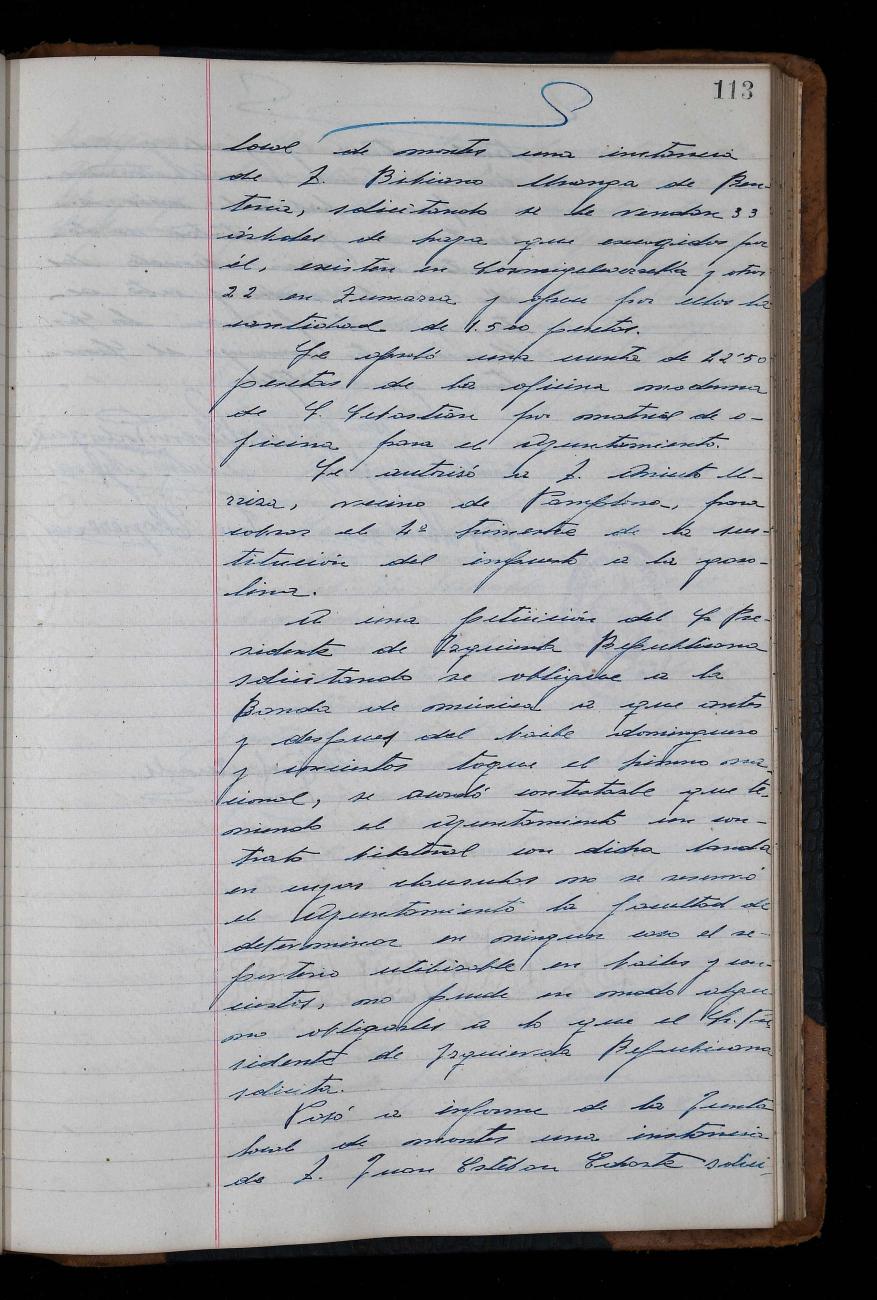 113
local de montes una instancia
de D. Bibiano Uranga de Ren-
teria, solicitando se le vendan 33
árboles de haya que escogidos por
él, existen en y otros
22 en y ofrece por ellos la
cantidad de 1.500 pesetas.
Se aprobó una cuenta de 22'50
pesetas de la oficina moderna
de S. Sebastian por material de o-
ficina para el Ayuntamiento.
Se autorizó a D. Aniceto U-
rriza, vecino de Pamplona, para
cobrar el 4º trimestre de la sus-
titución del impuesto a la gaso-
lina.
A una petición del Sr Pre-
sidente de Izquierda Republicana
solicitando se obligue a la
Banda de música a que antes
y despues del baile dominguero
y conciertos toque el himno na-
cional, se acordó contestarle que te-
niendo el Ayuntamiento un con-
trato bilateral con dicha banda
en cuyas clausulas no se reservó
el Ayuntamiento la facultad de
determinar en ningun caso el re-
pertorio utilizable en bailes y con-
ciertos, no puede en modo algu
no obligarles a lo que el Sr. Pre
sidente de Izquierda Republicana
solicita.
Pasó a informe de la Junta
local de montes una instancia
de D. Juan Esteban Echarte solici-